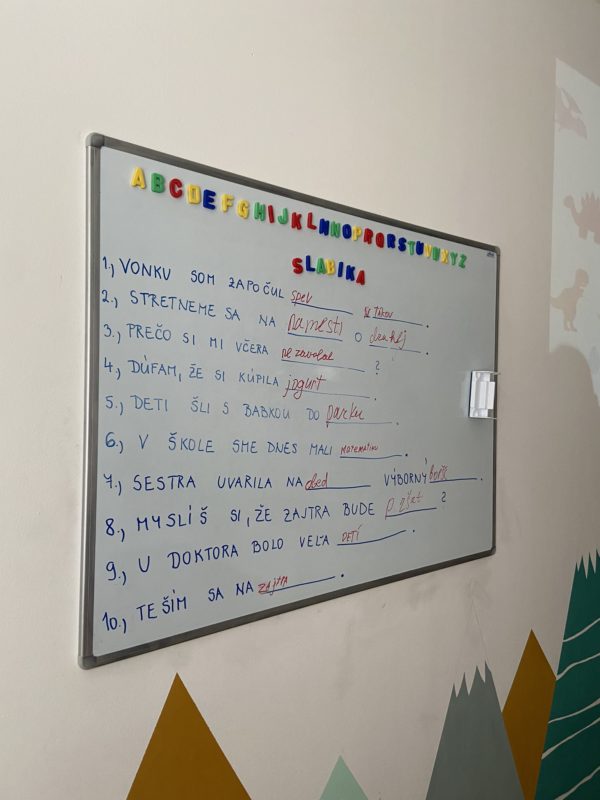 ABCDEFGHIJKLMNOPRQRSTUVWXYZ
SLABIKA
1.) VONKU SOM ZAPOČUL spev vtákov.
2.) STRETNEME SA NA namestí o druhej.
3.) PREČO SI MI VČERA nezavolal ?
4.) DÚFAM, ŽE SI KÚPILA jogurt.
5.) DETI ŠLI S BABKOU DO parku.
6.) V ŠKOLE SME DNES MALI MATEMATIKU.
7.) SESTRA UVARILA NA obed VÝBORNÝ boršč.
8.) MYSLÍŠ SI, ŽE ZAJTRA BUDE pršať ?
9.) U DOKTORA BOLO VEĽA DETÍ.
10.) TEŠÍM SA NA ZAJTRA.